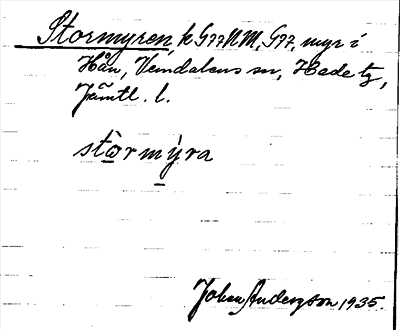 Stormyren k G77NM, G77, myr i
Hån, Vemdalens sn, Hede tg,
Jämtl. l.
stòrmýra
Johan Anderzson 1935.